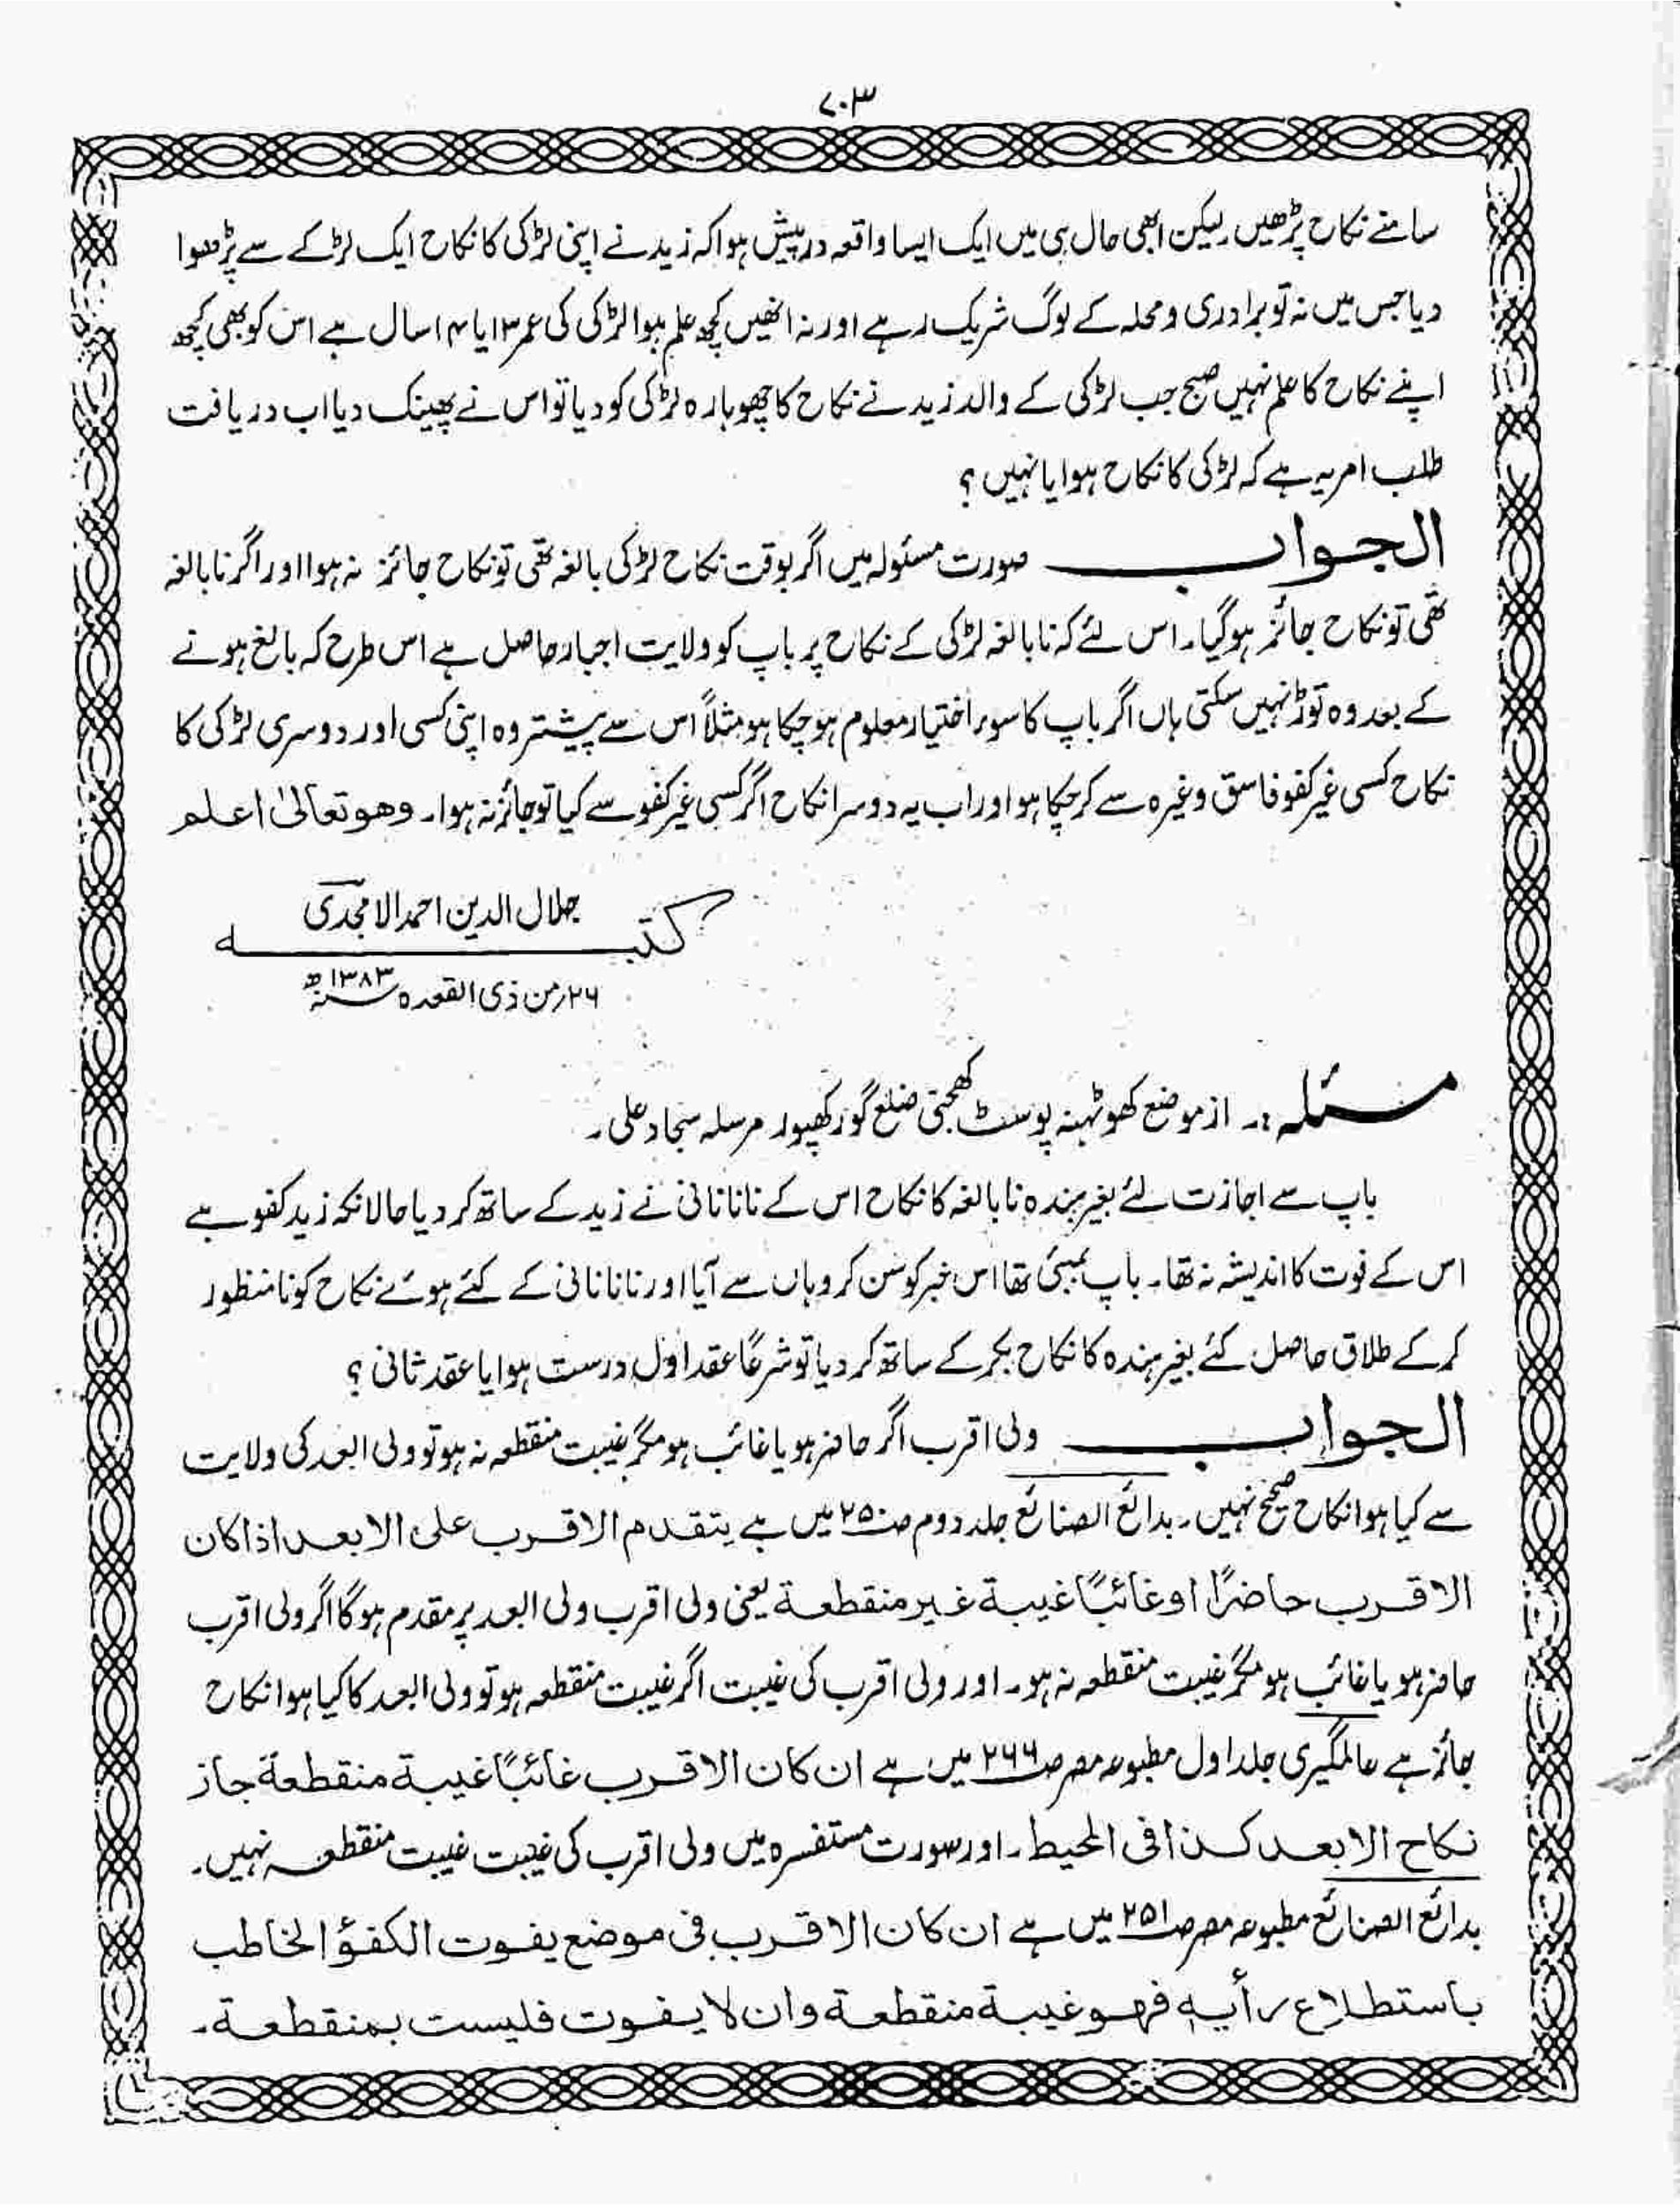 ۷۰۳
سامنے نکاح پڑھیں۔ لیکن ابھی حال ہی میں ایک ایسا واقعہ درپیش ہوا کہ زید نے اپنی لڑکی کا نکاح ایک لڑکے سے پڑھوا
دیا جس میں نہ تو برادری و محلہ کے لوگ شریک رہے اور نہ انھیں کچھ علم ہوا لڑکی کی عمر ۱۳ یا ۱۴ سال ہے اس کو بھی کچھ
اپنے نکاح کا علم نہیں صبح جب لڑکی کے والد زید نے نکاح کا چھوہارہ لڑکی کو دیا تو اس نے پھینک دیا اب دریافت
طلب امر یہ ہے کہ لڑکی کا نکاح ہوا یا نہیں ؟
الجواب صورت مسئولہ میں اگر بوقت نکاح لڑکی بالغہ تھی تو نکاح جائز نہ ہوا اور اگر نابالغہ
تھی تو نکاح جائز ہوگیا۔ اس لئے کہ نابالغہ لڑکی کے نکاح پر باپ کو ولایت اجبار حاصل ہے اس طرح کہ بالغ ہونے
کے بعد وہ توڑ نہیں سکتی ہاں اگر باپ کا سوء اختیار معلوم ہو چکا ہو مثلاً اس سے پیشتر وہ اپنی کسی اور دوسری لڑکی کا
نکاح کسی غیر کفو فاسق وغیرہ سے کر چکا ہو اور اب یہ دوسرا نکاح اگر کسی غیر کفو سے کیا تو جائز نہ ہوا۔ وھو تعالیٰ اعلم
جلال الدین احمد الامجدی
کتبہ
۲۶؍ من ذی القعدہ سنہ ۱۳۸۳ھ
مسئلہ :۔ از موضع کھوٹہنہ پوسٹ کھجنی ضلع گورکھپور مرسلہ سجاد علی۔
باپ سے اجازت لئے بغیر ہندہ نابالغہ کا نکاح اس کے نانا نانی نے زید کے ساتھ کر دیا حالانکہ زید کفو ہے
اس کے فوت کا اندیشہ نہ تھا۔ باپ بمبئی تھا اس خبر کو سُن کر وہاں سے آیا اور نانا نانی کے کئے ہوئے نکاح کو نامنظور
کرکے طلاق حاصل کئے بغیر ہندہ کا نکاح بکر کے ساتھ کر دیا تو شرعًا عقد اول درست ہوا یا عقد ثانی ؟
الجواب ولی اقرب اگر حاضر ہو یا غائب ہو مگر غیبت منقطعہ نہ ہو تو ولی ابعد کی ولایت
سے کیا ہوا نکاح صحیح نہیں۔ بدائع الصنائع جلد دوم صـ۲۵۰ میں ہے یتقدم الاقرب علی الابعد اذا کان
الاقرب حاضرًا او غائبًا غیبة غیر منقطعة یعنی ولی اقرب ولی ابعد پر مقدم ہوگا اگر ولی اقرب
حاضر ہو یا غائب ہو مگر غیبت منقطعہ نہ ہو۔ اور ولی اقرب کی غیبت اگر غیبت منقطعہ ہو تو ولی ابعد کا کیا ہوا نکاح
جائز ہے عالمگیری جلد اول مطبوعہ مصر صـ۲۶۶ میں ہے ان کان الاقرب غائبًا غیبة منقطعة جاز
نکاح الابعد کذا فی المحیط۔ اور صورت مستفسرہ میں ولی اقرب کی غیبت غیبت منقطعہ نہیں۔
بدائع الصنائع مطبوعہ مصر صـ۲۵۱ میں ہے ان کان الاقرب فی موضع یفوت الکفؤ الخاطب
باستطلاع رأیہ فھو غیبة منقطعة وان لا یفوت فلیست بمنقطعة۔